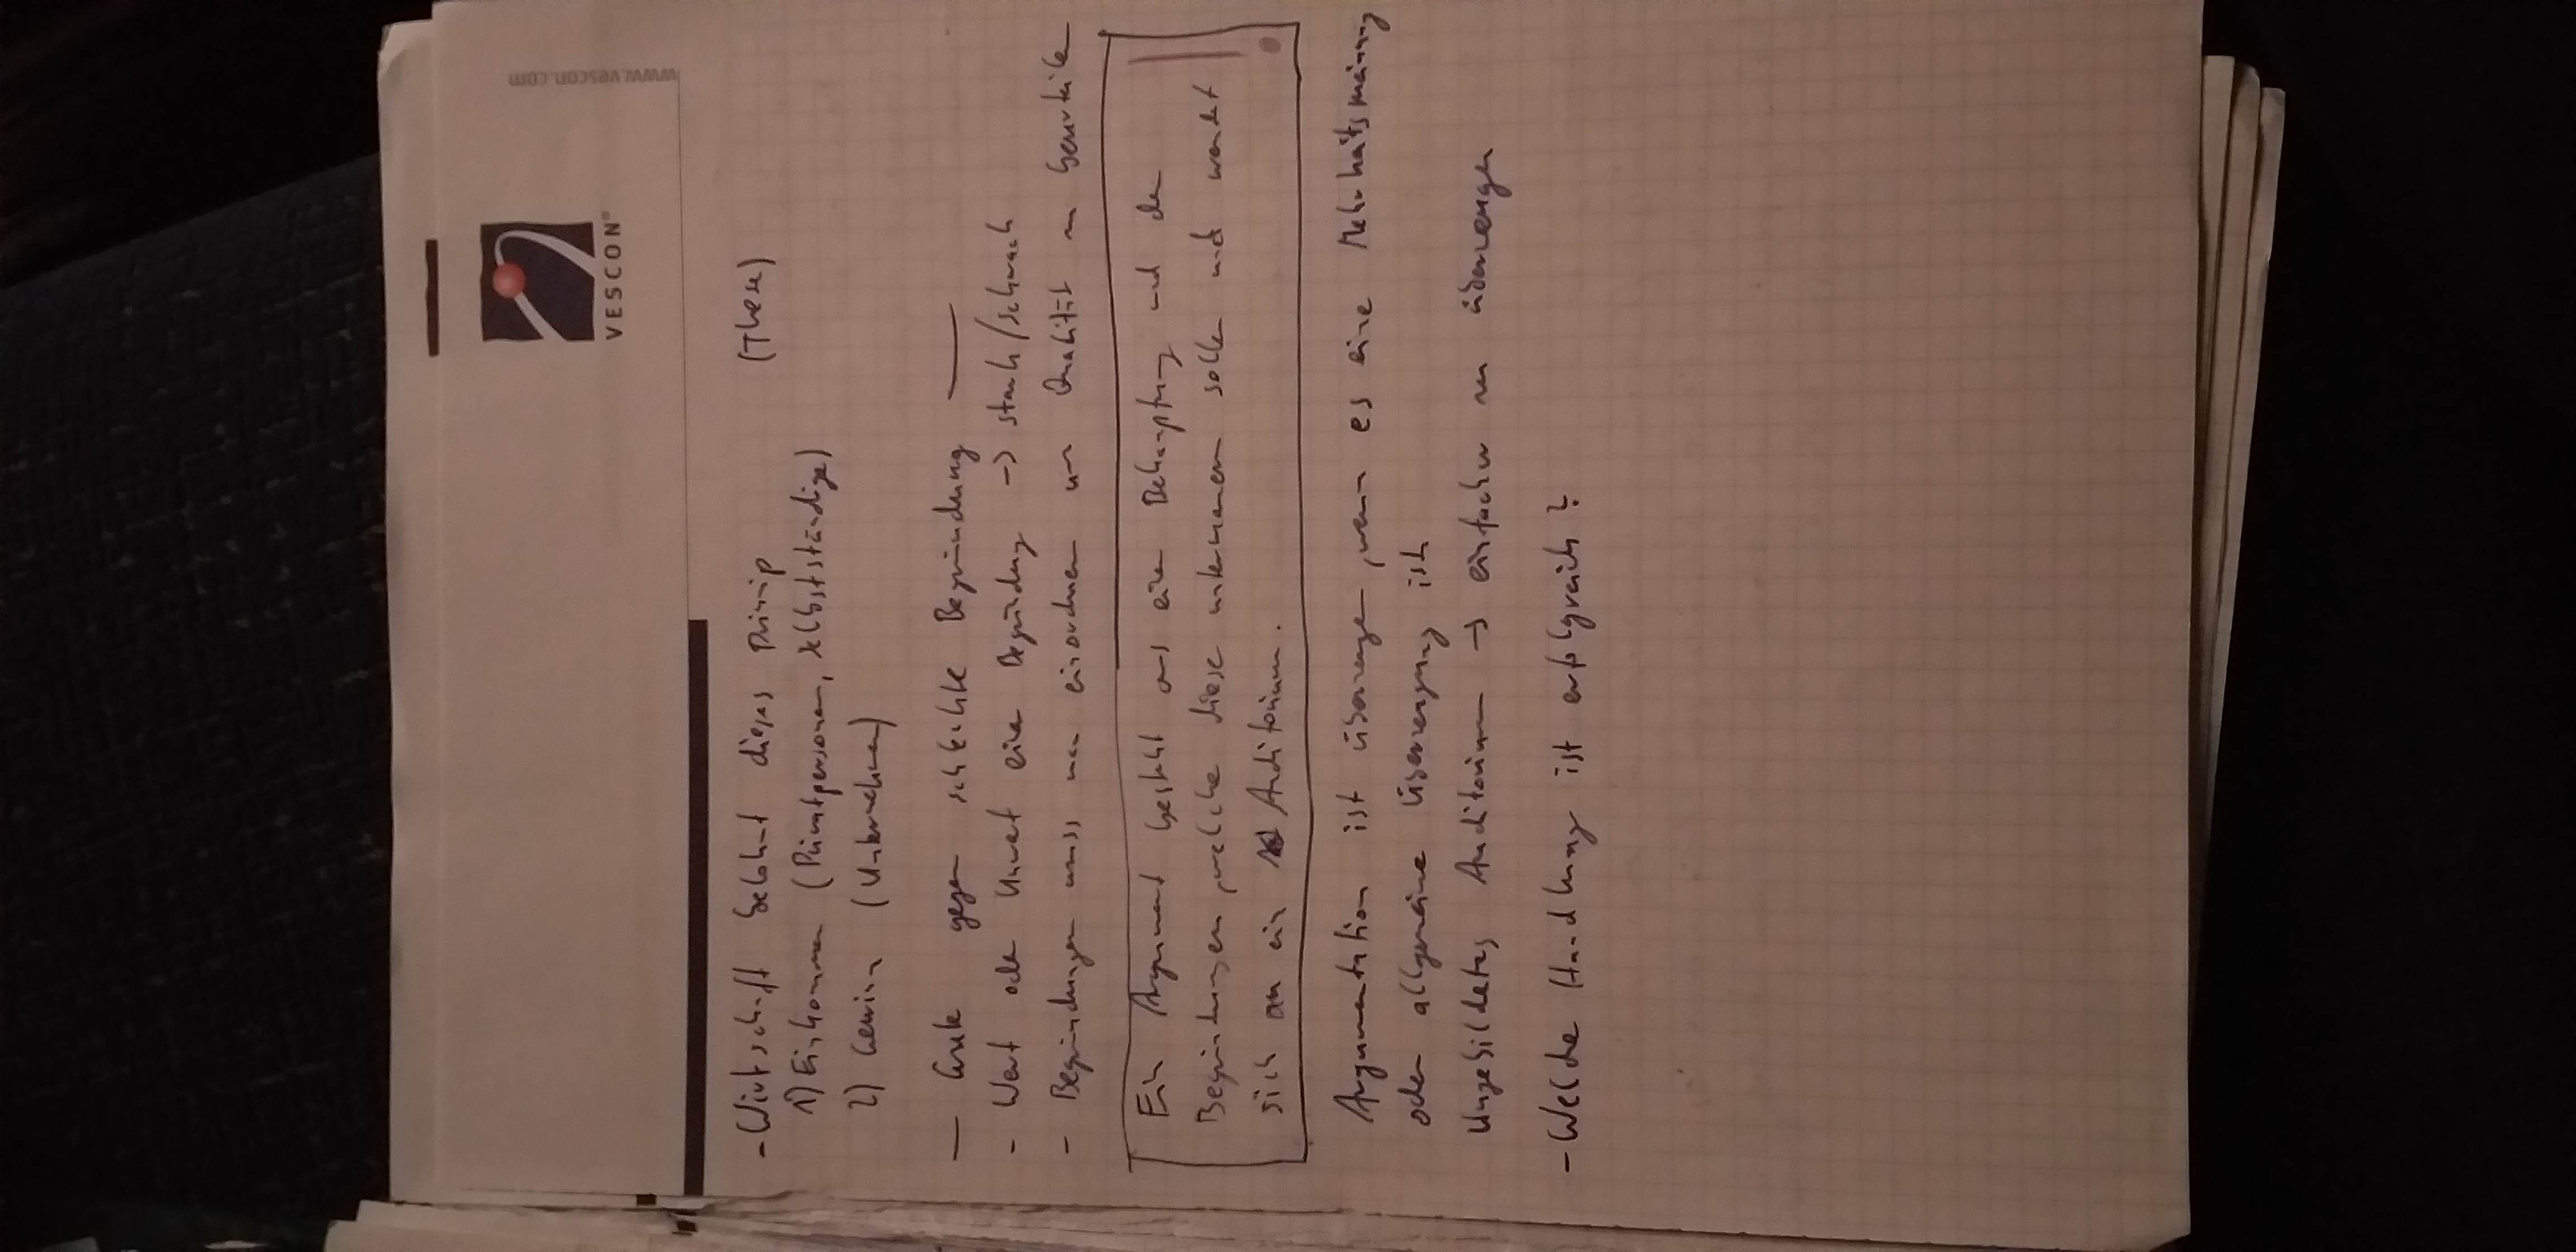 VESCON®
www.vescon.com
- Wirtschaft belohnt dieses Prinzip (These)
1) Einkommen (Privatpersonen, Selbstständige)
2) Gewinn (Unternehmen)
— Gute gegen schlechte Begründung —
- Wert oder Unwert einer Begründung -> stark/schwach
- Begründungen muss man einordnen um Qualität zu beurteilen
Ein Argument besteht aus einer Behauptung und den
Begründungen, welche diese untermauern sollen und wendet
sich an ein Auditorium.
Argumentation ist überzeugen, wenn es eine Mehrheitsmeinung
oder allgemeine Überzeugung ist
Ungebildetes Auditorium -> einfacher zu überzeugen
- Welche Handlung ist erfolgreich?